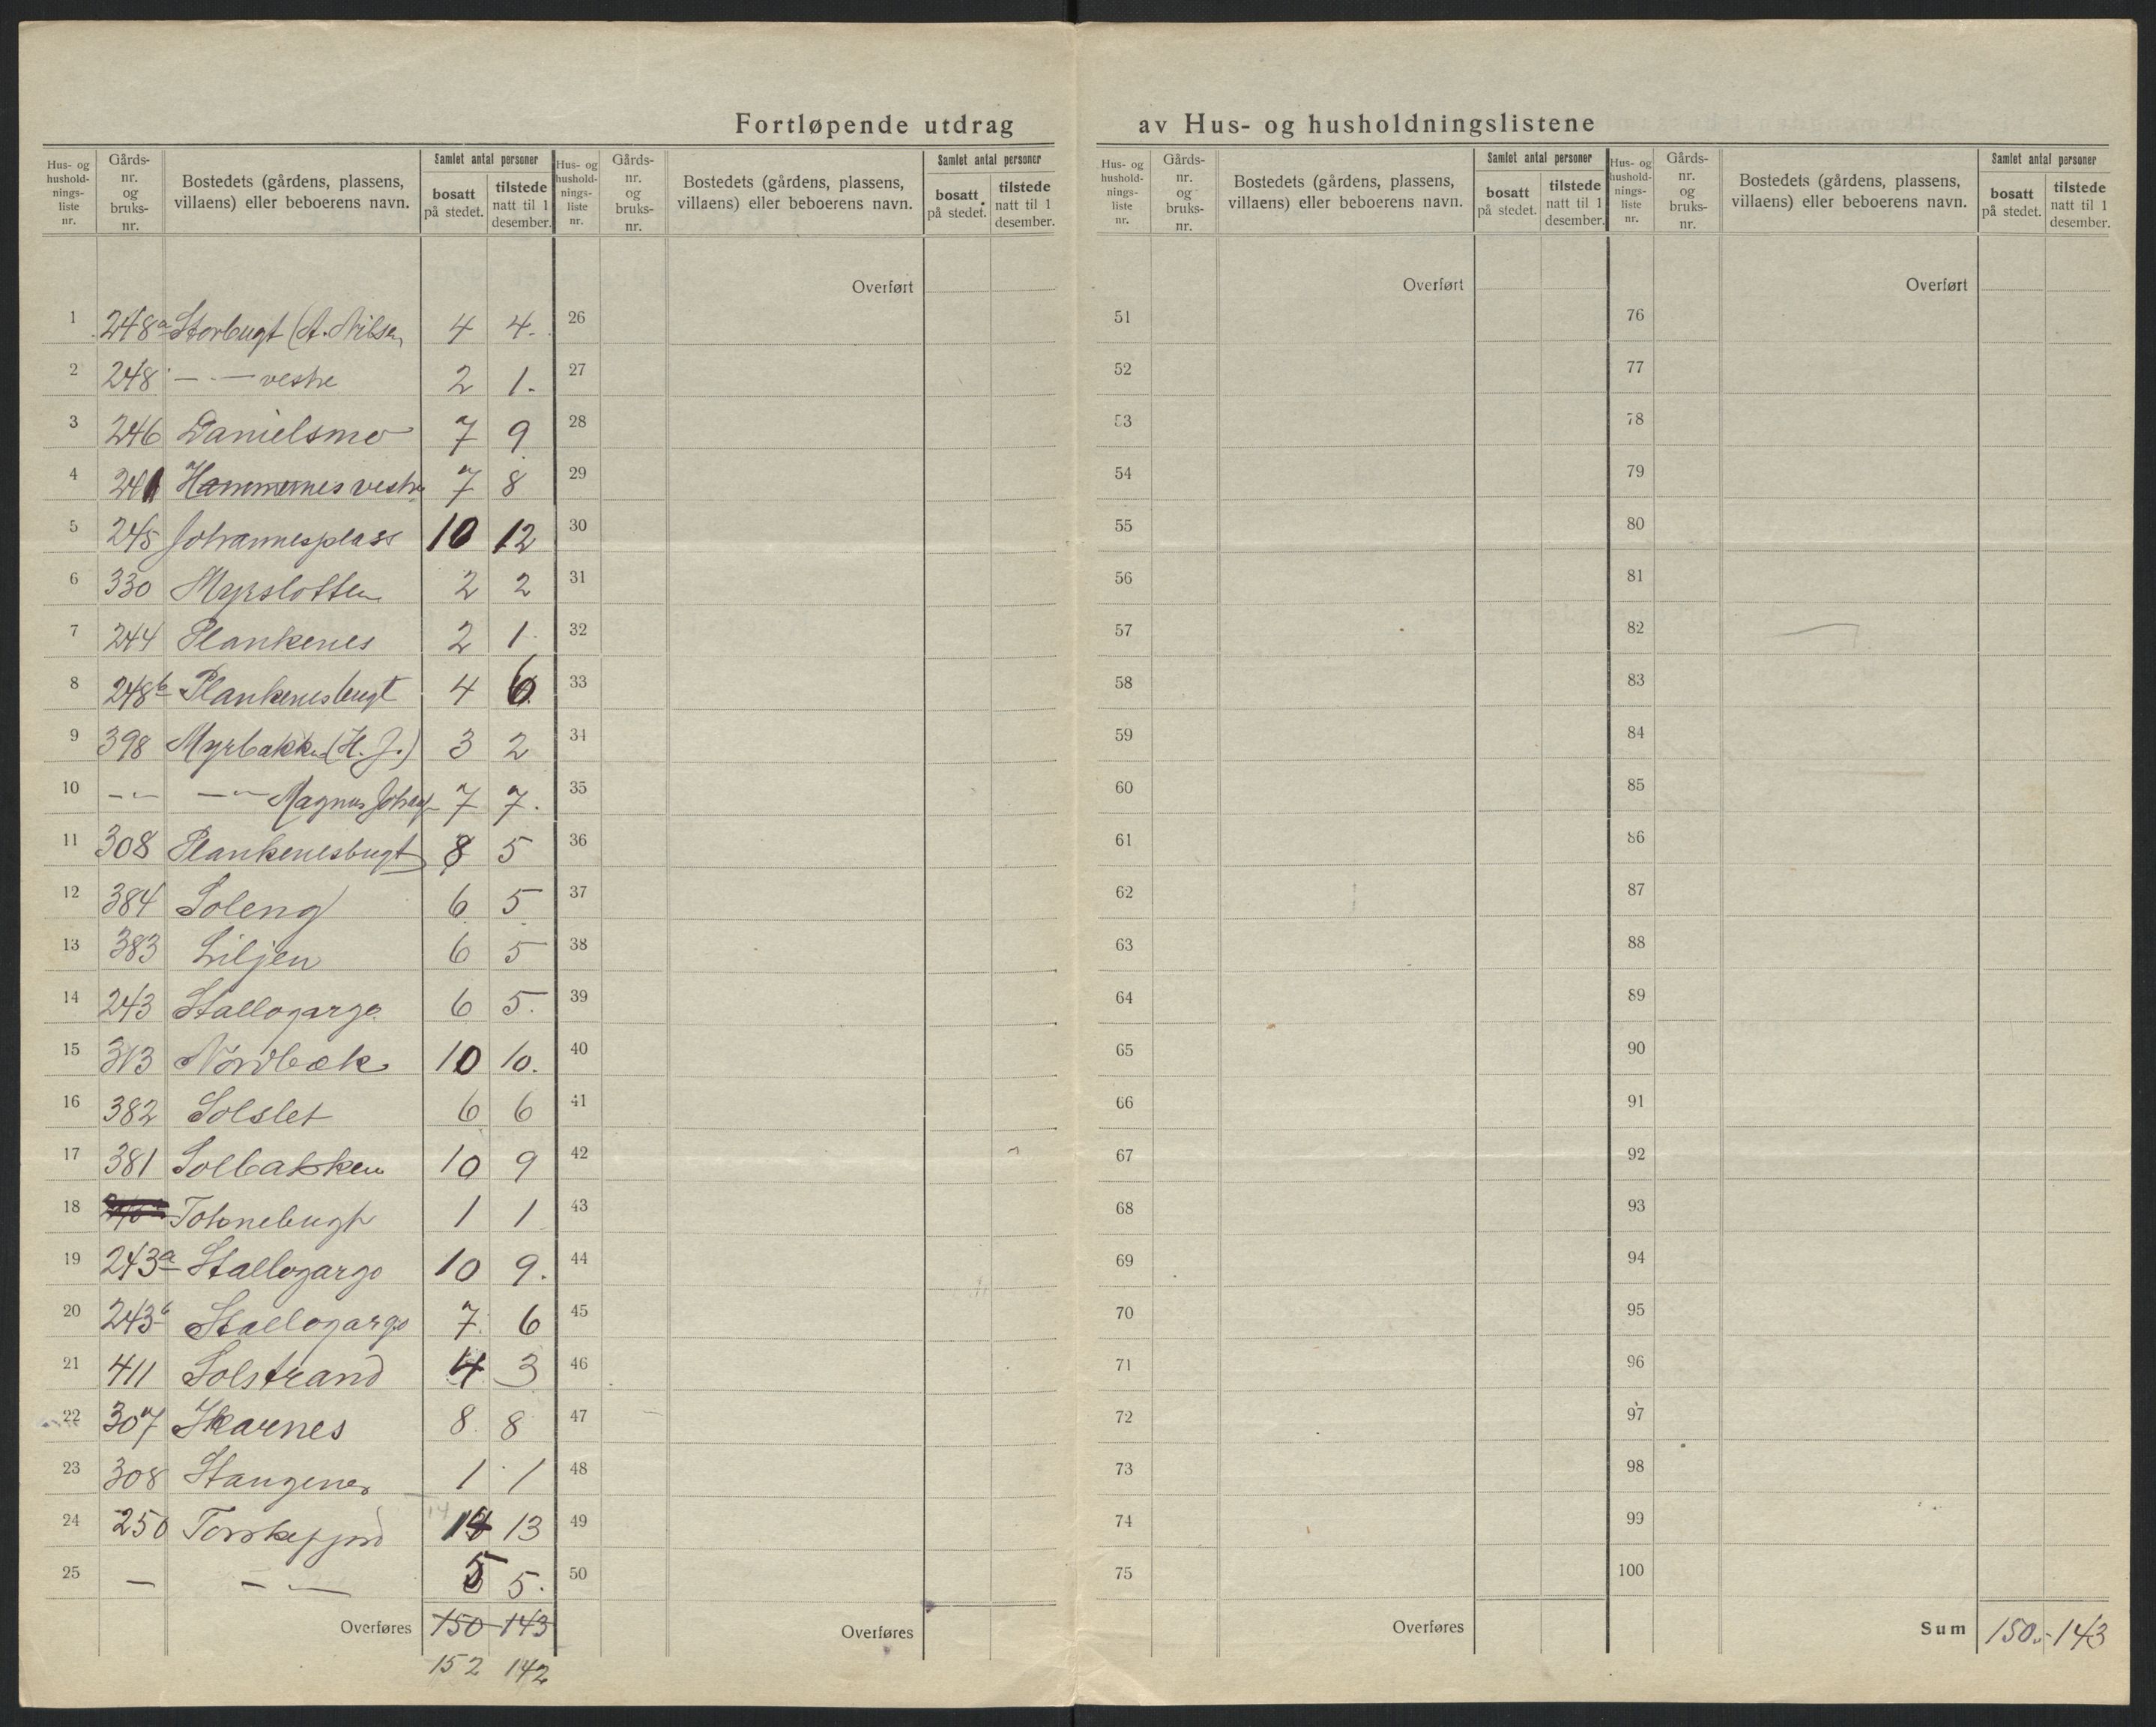 Fortløpende utdrag av Hus- og husholdningslistene
Hus- og husholdnings-liste nr. Gårds-nr. og bruks-nr. Bostedets (gårdens, plassens, villaens) eller beboerens navn. Samlet antal personer bosatt på stedet. tilstede natt til 1 desember.
Hus- og husholdnings-liste nr. Gårds-nr. og bruks-nr. Bostedets (gårdens, plassens, villaens) eller beboerens navn. Samlet antal personer bosatt på stedet. tilstede natt til 1 desember.
Hus- og husholdnings-liste nr. Gårds-nr. og bruks-nr. Bostedets (gårdens, plassens, villaens) eller beboerens navn. Samlet antal personer bosatt på stedet. tilstede natt til 1 desember.
Hus- og husholdnings-liste nr. Gårds-nr. og bruks-nr. Bostedets (gårdens, plassens, villaens) eller beboerens navn. Samlet antal personer bosatt på stedet. tilstede natt til 1 desember.
Overført Overført Overført
1 248a Storbugt (A. Nilsen 4 4. 26 51 76
2 248 — " — vestre 2 1. 27 52 77
3 246 Danielsmo 7 9 28 53 78
4 241 Hammernes vestre 7 8 29 54 79
5 245 Johannesplass 10 12 30 55 80
6 330 Myrslotten 2 2 31 56 81
7 244 Plankenes 2 1 32 57 82
8 248b Plankenesbugt 4 6 33 58 83
9 398 Myrbakken (H. J.) 3 2 34 59 84
10 — " — — " — Magnus 7 7. 35 60 85
11 308 Plankenesbugt 8 5 36 61 86
12 384 Soleng 6 5 37 62 87
13 383 Liljen 6 5 38 63 88
14 243 Stallogargo 6 5. 39 64 89
15 313 Nordbæk 10 10. 40 65 90
16 382 Solslet 6 6 41 66 91
17 381 Solbakken 10 9 42 67 92
18 Tohnebugt 1 1 43 68 93
19 243a Stallogargo 10 9. 44 69 94
20 243b Stallogargo 7 6 45 70 95
21 411 Solstrand 4 3 46 71 96
22 307 Skarnes 8 8 47 72 97
23 308 Stangenes 1 1 48 73 98
24 250 Torskefjord 14 14 13 49 74 99
25 — — " — 5 5. 50 75 100
Overføres 150 143 Overføres Overføres Sum 150.-143
152 142